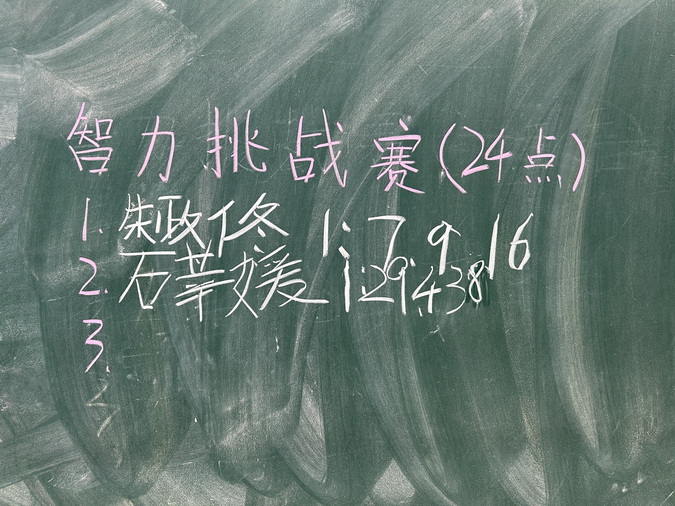 智力挑战赛(24点)
1. 朱政佟 1;7.9.16
2. 石莘媛 1;29;4388
3.